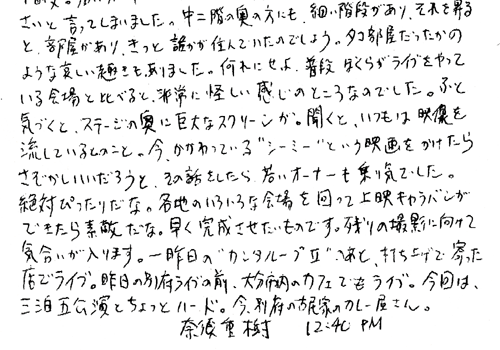 さいと言ってしまいました。中二階の奥の方にも、細い階段があり、それを昇る
と、部屋があり、きっと誰かが住んでいたのでしょう。タコ部屋だったかの
ような哀しい趣きもありました。何れにせよ、普段ぼくらがライブをやって
いる会場と比べると、非常に怪しい感じのところなのでした。ふと
気づくと、ステージの奥に巨大なスクリーンが。聞くと、いつもは映像を
流しているとのこと。今、かかわっている"シーミー"という映画をかけたら
さぞかしいいだろうと、その話をしたら若いオーナーも乗り気でした。
絶対ぴったりだな。各地のいろいろな会場を回って上映キャラバンが
できたら素敵だな。早く完成させたいものです。残りの撮影に向けて
気合いが入ります。一昨日の"カンタループⅡ"のあと、打ち上げで寄った
店でライブ。昨日の別府ライブの前、大分市内のカフェでもライブ。今回は、
三泊五公演とちょっとハード。今、別府の古民家のカレー屋さん。
奈須重樹 12:40 PM